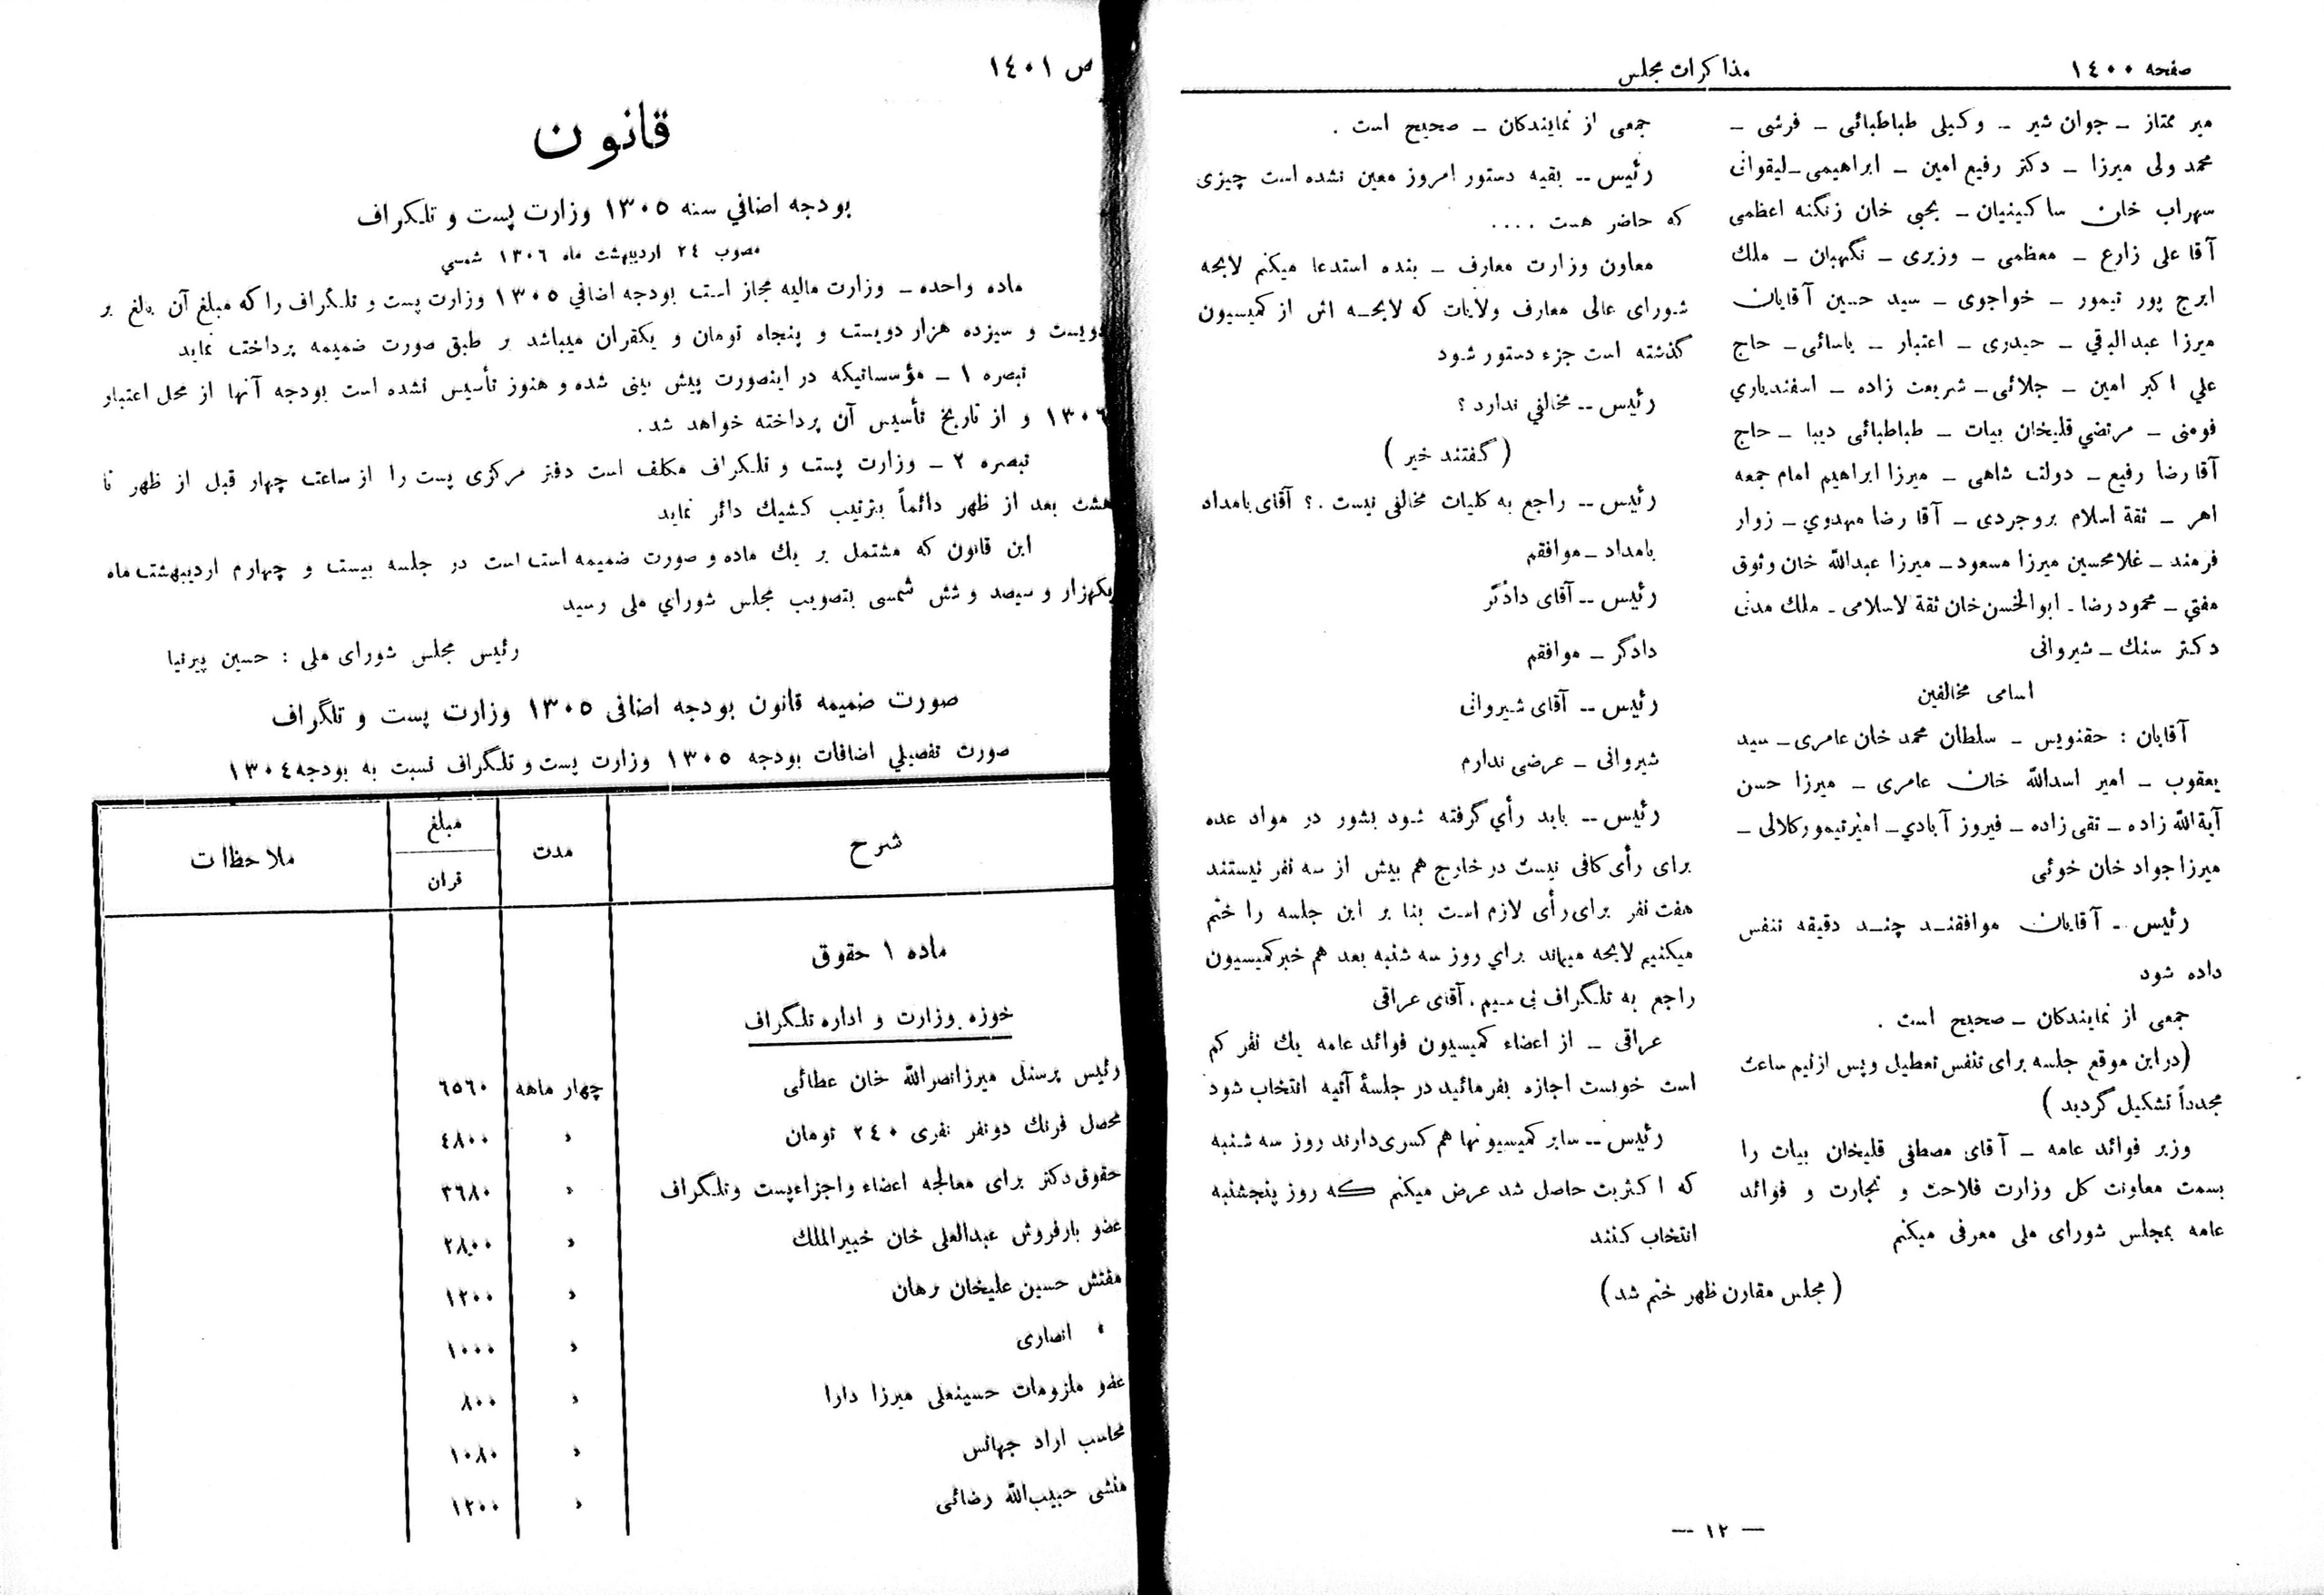 صفحه ١٤٠٠
مذاکرات مجلس
میر ممتاز ــ جوان شیر ــ وکیلی طباطبائی ــ فرشی ــ
محمد ولی میرزا ــ دکتر رفیع امین ــ ابراهیمی ــ لیقوانی
سهراب خان ساکینیان ــ یحیی خان زنگنه اعظمی
آقا علی زارع ــ معظمی ــ وزیری ــ نگهبان ــ ملك
ایرج پور تیمور ــ خواجوی ــ سید حسین آقایان
میرزا عبدالباقي ــ حیدری ــ اعتبار ــ یاسائی ــ حاج
علي اکبر امین ــ جلائی ــ شریعت زاده ــ اسفندیاري
فومنی ــ مرتضي قلیخان بیات ــ طباطبائی دیبا ــ حاج
آقا رضا رفیع ــ دولت شاهی ــ میرزا ابراهیم امام جمعه
اهر ــ ثقة اسلام بروجردی ــ آقا رضا مهدوي ــ زوار
فرمند ــ غلامحسین میرزا مسعود ــ میرزا عبدالله خان وثوق
مفتي ــ محمود رضا ــ ابوالحسن خان ثقة لاسلامی ــ ملك مدنی
دکتر سنك ــ شیروانی
اسامی مخالفین
آقایان : حقنویس ــ سلطان محمد خان عامری ــ سید
یعقوب ــ امیر اسدالله خان عامری ــ میرزا حسن
آیة‌الله زاده ــ تقی زاده ــ فیروز آبادي ــ امیر تیمور کلالی ــ
میرزا جواد خان خوئی
رئیس ــ آقایان موافقند چند دقیقه تنفس
داده شود
جمعی از نمایندکان ــ صحیح است .
(در این موقع جلسه برای تنفس تعطیل و پس از نیم ساعت
مجدداً تشکیل گردید )
وزیر فوائد عامه ــ آقای مصطفی قلیخان بیات را
بسمت معاونت کل وزارت فلاحت و تجارت و فوائد
عامه بمجلس شورای ملی معرفی میکنم
جمعی از نمایندکان ــ صحیح است .
رئیس ــ بقیه دستور امروز معین نشده است چیزی
که حاضر هست ....
معاون وزارت معارف ــ بنده استدعا میکنم لایحه
شورای عالی معارف ولایات که لایحه اش از کمیسیون
گذشته است جزء دستور شود
رئیس ــ مخالفي ندارد ؟
( گفتند خیر )
رئیس ــ راجع به کلیات مخالفی نیست .؟ آقای بامداد
بامداد ــ موافقم
رئیس ــ آقای دادگر
دادگر ــ موافقم
رئیس ــ آقای شیروانی
شیروانی ــ عرضی ندارم
رئیس ــ باید رأي گرفته شود بشور در مواد عده
برای رأی کافی نیست در خارج هم بیش از سه نفر نیستند
هفت نفر برای رأی لازم است بنا بر این جلسه را ختم
میکنیم لایحه میماند براي روز سه شنبه بعد هم خبر کمیسیون
راجع به تلگراف بی سیم . آقای عراقی
عراقی ــ از اعضاء کمیسیون فوائد عامه یك نفر کم
است خوبست اجازه بفرمائید در جلسهٔ آتیه انتخاب شود
رئیس ــ سایر کمیسیونها هم کسری دارند روز سه شنبه
که اکثریت حاصل شد عرض میکنم که روز پنجشنبه
انتخاب کنند
( مجلس مقارن ظهر ختم شد )
— ١٢ —
ص ١٤٠١
قانون
بودجه اضافي سنه ١٣٠٥ وزارت پست و تلگراف
مصوب ٢٤ اردیبهشت ماه ١٣٠٦ شمسي
ماده واحده ــ وزارت مالیه مجاز است بودجه اضافي ١٣٠٥ وزارت پست و تلگراف را که مبلغ آن بالغ بر
دویست و سیزده هزار دویست و پنجاه تومان و یکقران میباشد بر طبق صورت ضمیمه پرداخت نماید
تبصره ١ ــ مؤسساتیکه در اینصورت پیش بینی شده و هنوز تأسیس نشده است بودجه آنها از محل اعتبار
١٣٠٦ و از تاریخ تأسیس آن پرداخته خواهد شد .
تبصره ٢ ــ وزارت پست و تلگراف مکلف است دفتر مرکزی پست را از ساعت چهار قبل از ظهر تا
هشت بعد از ظهر دائماً بترتیب کشیك دائر نماید
این قانون که مشتمل بر یك ماده و صورت ضمیمه است است در جلسه بیست و چهارم اردیبهشت ماه
یکهزار و سیصد و شش شمسی بتصویب مجلس شوراي ملی رسید
رئیس مجلس شورای ملی : حسین پیرنیا
صورت ضمیمه قانون بودجه اضافی ١٣٠٥ وزارت پست و تلگراف
صورت تفصیلي اضافات بودجه ١٣٠٥ وزارت پست و تلگراف نسبت به بودجه ١٣٠٤
شرح مدت مبلغ ملاحظات
قران
ماده ١ حقوق
حوزه وزارت و اداره تلگراف
رئیس پرسنل میرزا نصرالله خان عطائی چهار ماهه ٦٥٦٠
محصل فرنك دو نفر نفری ٢٤٠ تومان » ٤٨٠٠
حقوق دکتر برای معالجه اعضاء و اجزاء پست و تلگراف » ٣٦٨٠
عضو بارفروش عبدالعلی خان خبیرالملك » ٢٨٠٠
مفتش حسین علیخان برهان » ١٢٠٠
» انصاری » ١٠٠٠
عضو ملزومات حسینعلی میرزا دارا » ٨٠٠
محاسب اراد جهانس » ١٠٨٠
منشی حبیب‌الله رضائی » ١٢٠٠